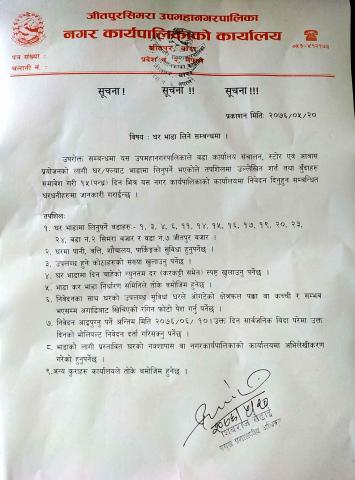 जीतपुरसिमरा उपमहानगरपालिका
नगर कार्यपालिकाको कार्यालय
जीतपुर, बारा
प्रदेश नं. २, नेपाल
पत्र संख्या :
चलानी नं. :
सूचना ! सूचना !! सूचना !!!
प्रकाशन मितिः २०७६/०५/२०
विषय : घर भाडा लिने सम्बन्धमा ।
उपरोक्त सम्बन्धमा यस उपमहानगरपालिकाले वडा कार्यालय संचालन, स्टोर एवं आवास
प्रयोजनको लागी घर/फ्ल्याट भाडामा लिनुपर्ने भएकोले तपशिलमा उल्लेखित शर्त तथा बुँदाहरु
समावेश गरी १५(पन्ध्र) दिन भित्र यस नगर कार्यपालिकाको कार्यालयमा निवेदन दिनुहुन सम्बन्धित
घरधनीहरुमा जानकारी गराईन्छ ।
तपशिलः
१. घर भाडामा लिनुपर्ने वडाहरु - १, ३, ४, ६, ११, १४, १५, १६, १७, १९, २०, २३,
२४, वडा नं.२ सिमरा बजार र वडा नं.७ जीतपुर बजार ।
२. घरमा पानी, बत्ति, शौचालय, पार्किङ्गको सुविधा हुनुपर्नेछ ।
३. उपलब्ध हुने कोठाहरुको संख्या खुलाउनु पर्नेछ ।
४. घर भाडामा दिन चाहेको न्युनतम दर (करकट्टी समेत) स्पष्ट खुलाउनु पर्नेछ ।
५. भाडा कर भाडा निर्धारण समितिले तोके बमोजिम हुनेछ ।
६. निवेदनका साथ घरको उपलब्ध सुविधा घरले ओगटेको क्षेत्रफल पक्का वा कच्ची र सम्भव
भएसम्म अगाडिबाट खिचिएको रंगिन फोटो पेश गर्नु पर्नेछ ।
७. निवेदन आइपुग्नु पर्ने अन्तिम मिति २०७६/०६/१० । उक्त दिन सार्वजनिक विदा परेमा उक्त
दिनको भोलिपल्ट निवेदन दर्ता गरिसक्नु पर्नेछ ।
८. भाडाको लागी प्रस्तावित घरको नक्सापास वा नगरकार्यपालिकाको कार्यालयमा अभिलेखीकरण
गरेको हुनुपर्नेछ ।
९. अन्य कुराहरु कार्यालयले तोके बमोजिम हुनेछ ।
२०७६/५/२०